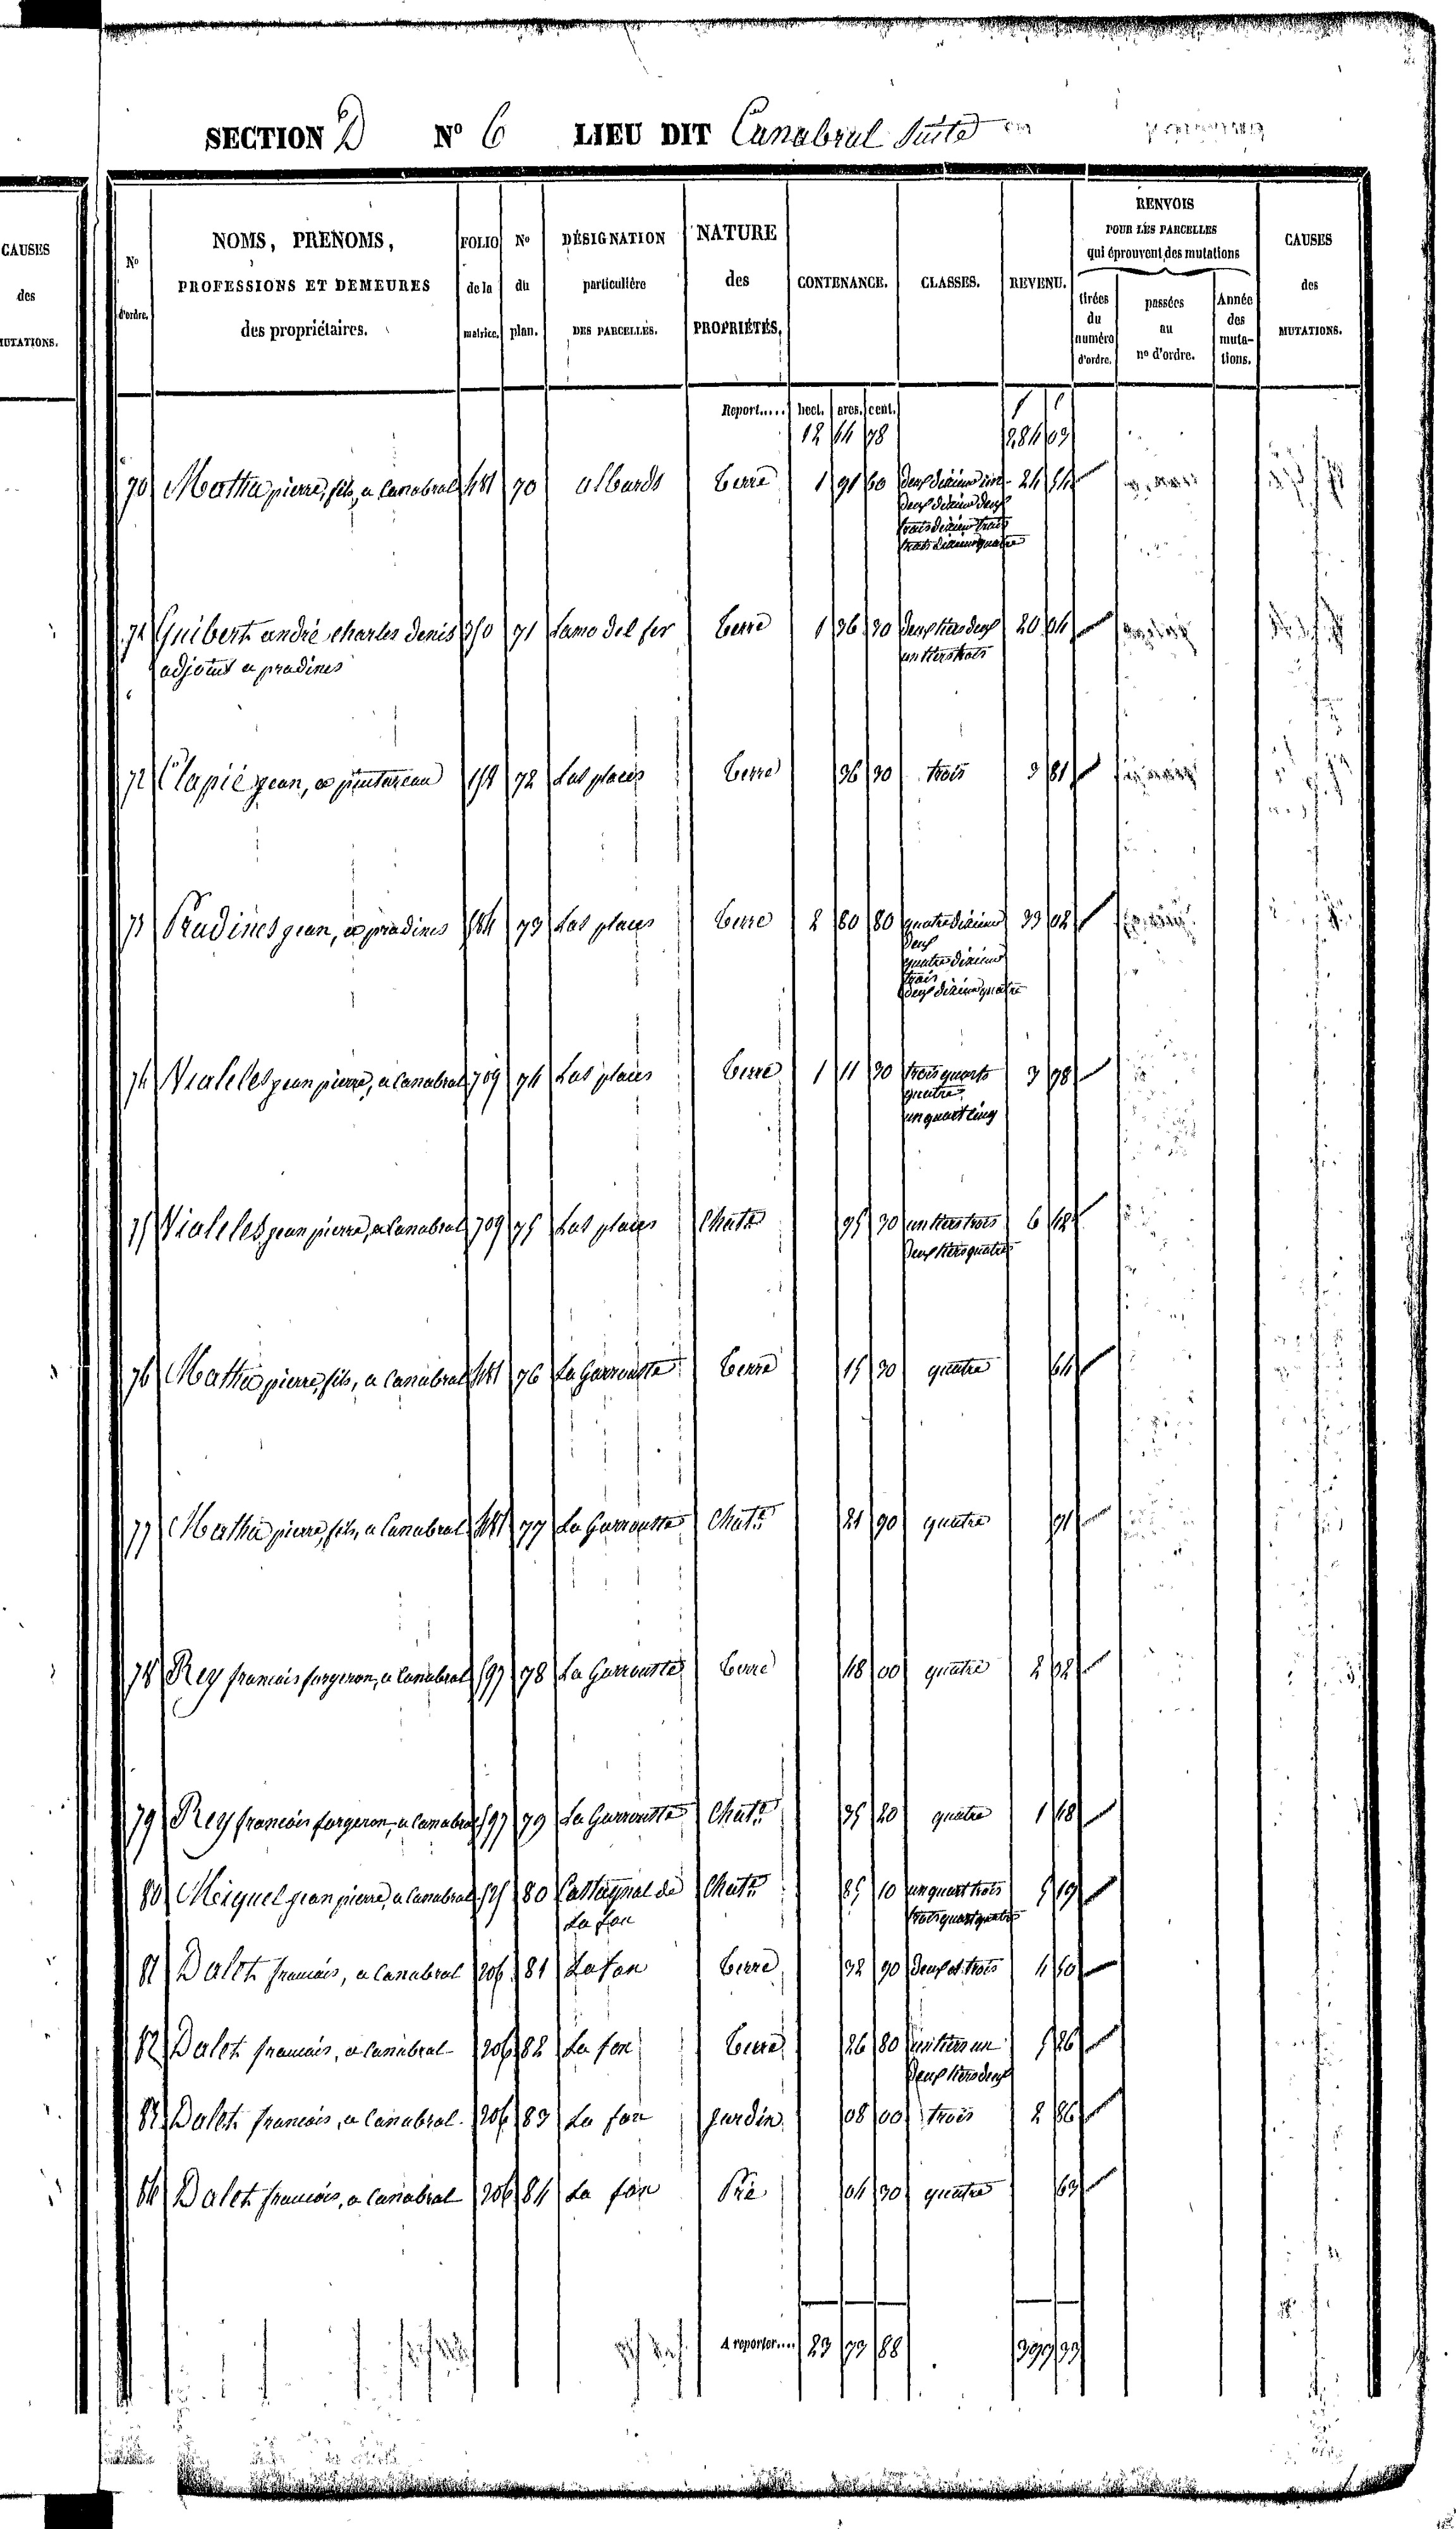 SECTION D N° 6 LIEU DIT Canabral Suite
CAUSES
des
MUTATIONS.
N°
d'ordre.
NOMS, PRENOMS,
PROFESSIONS ET DEMEURES
des propriétaires.
FOLIO
de la
matrice.
N°
du
plan.
DÉSIGNATION
particulière
DES PARCELLES.
NATURE
des
PROPRIÉTÉS.
CONTENANCE.
CLASSES.
REVENU.
RENVOIS
POUR LES PARCELLES
qui éprouvent des mutations
tirées
du
numéro
d'ordre.
passées
au
n° d'ordre.
Année
des
muta-
tions.
CAUSES
des
MUTATIONS.
Report..... hect. ares. cent. f c
12 44 78 284 09
70 Mathia pierre, fils, a Canabral 481 70 albards terre 1 91 60 deux dixieme un 24 54
deux dixieme deux
trois dixieme trois
trois dixieme quatre
71 Guibert andré charles denis 350 71 Lamo del fer terre 1 36 30 deux tiers deux 20 04
adjoint a pradines un tiers trois
72 Clapié jean, a 158 72 Las places terre 36 30 trois 3 81
73 Pradines jean, a pradines 584 73 Las places terre 2 80 80 quatre dixieme 33 02
deux
quatre dixieme
trois
deux dixieme quatre
74 Vialeles jean pierre, a Canabral 709 74 Las places terre 1 11 30 trois quarts 3 78
quatre
un quart cinq
75 Vialeles jean pierre, a Canabral 709 75 Las places Chat.re 95 30 un tiers trois 6 48
deux tiers quatre
76 Mathia pierre, fils, a Canabral 481 76 La Garrouste terre 15 30 quatre 64
77 Mathia pierre, fils, a Canabral 481 77 La Garrouste Chat.re 21 90 quatre 91
78 Rey francois forgeron, a Canabral 597 78 La Garrouste terre 48 00 quatre 2 02
79 Rey francois forgeron, a Canabral 597 79 La Garrouste Chat.re 35 20 quatre 1 48
80 Miquel jean pierre, a Canabral 525 80 Castagnal de Chat.re 85 10 un quart trois 5 19
La fon trois quart quatre
81 Dalet francois, a Canabral 206 81 La fon terre 32 90 deux et trois 4 50
82 Dalet francois, a Canabral 206 82 La fon terre 26 80 un tiers un 5 26
deux tiers deux
83 Dalet francois, a Canabral 206 83 La fon jardin 08 00 trois 2 86
84 Dalet francois, a Canabral 206 84 La fon Pré 04 30 quatre 63
A reporter.... 23 73 88 399 33